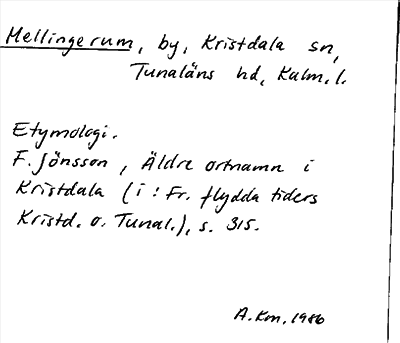 Mellingerum, by, Kristdala sn,
Tunaläns hd, Kalm. l.
Etymologi.
F. Jönsson, Äldre ortnamn i
Kristdala (i: Fr. flydda tiders
Kristd. o. Tunal.), s. 315.
A. Km. 1986